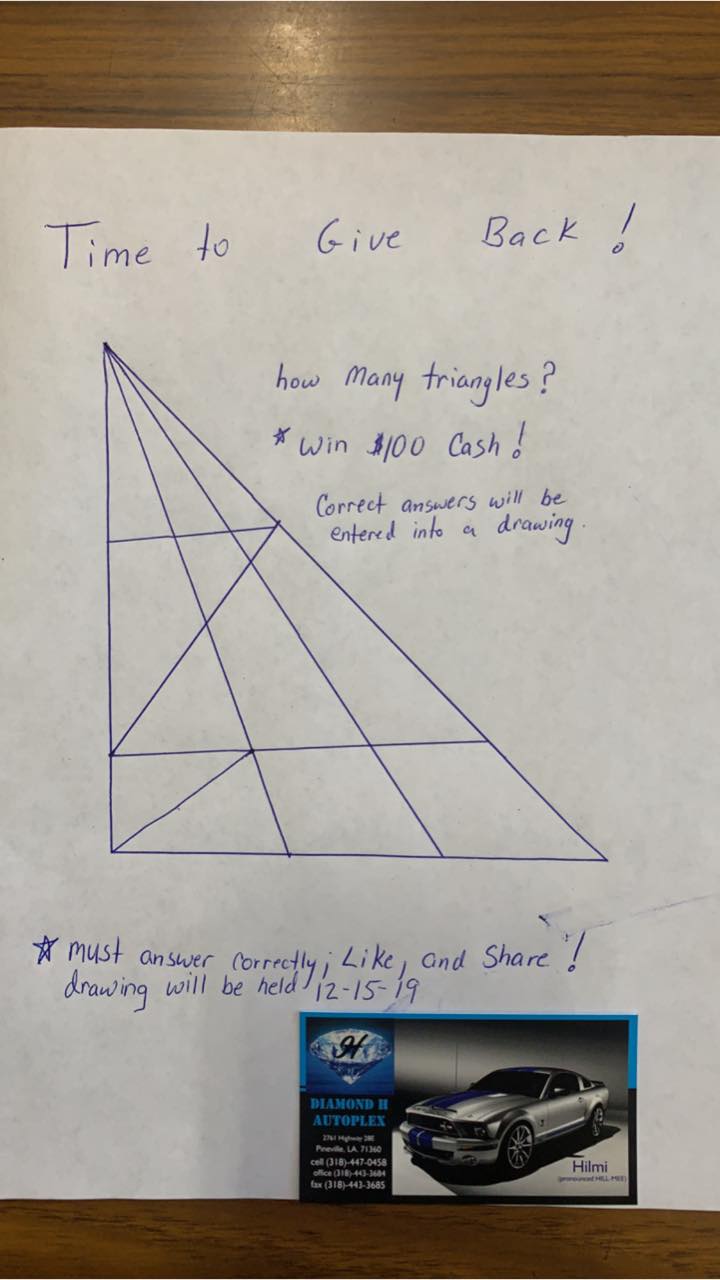 Time to Give Back!
how many triangles?
* Win $100 Cash!
Correct answers will be
entered into a drawing.
* must answer correctly; Like, and Share!
drawing will be held 12-15-19
H
DIAMOND H
AUTOPLEX
2761 Highway 28E
Pineville, LA. 71360
cell (318)-447-0458
office (318)-443-3684
fax (318)-443-3685
Hilmi
(pronounced HILL-MEE)